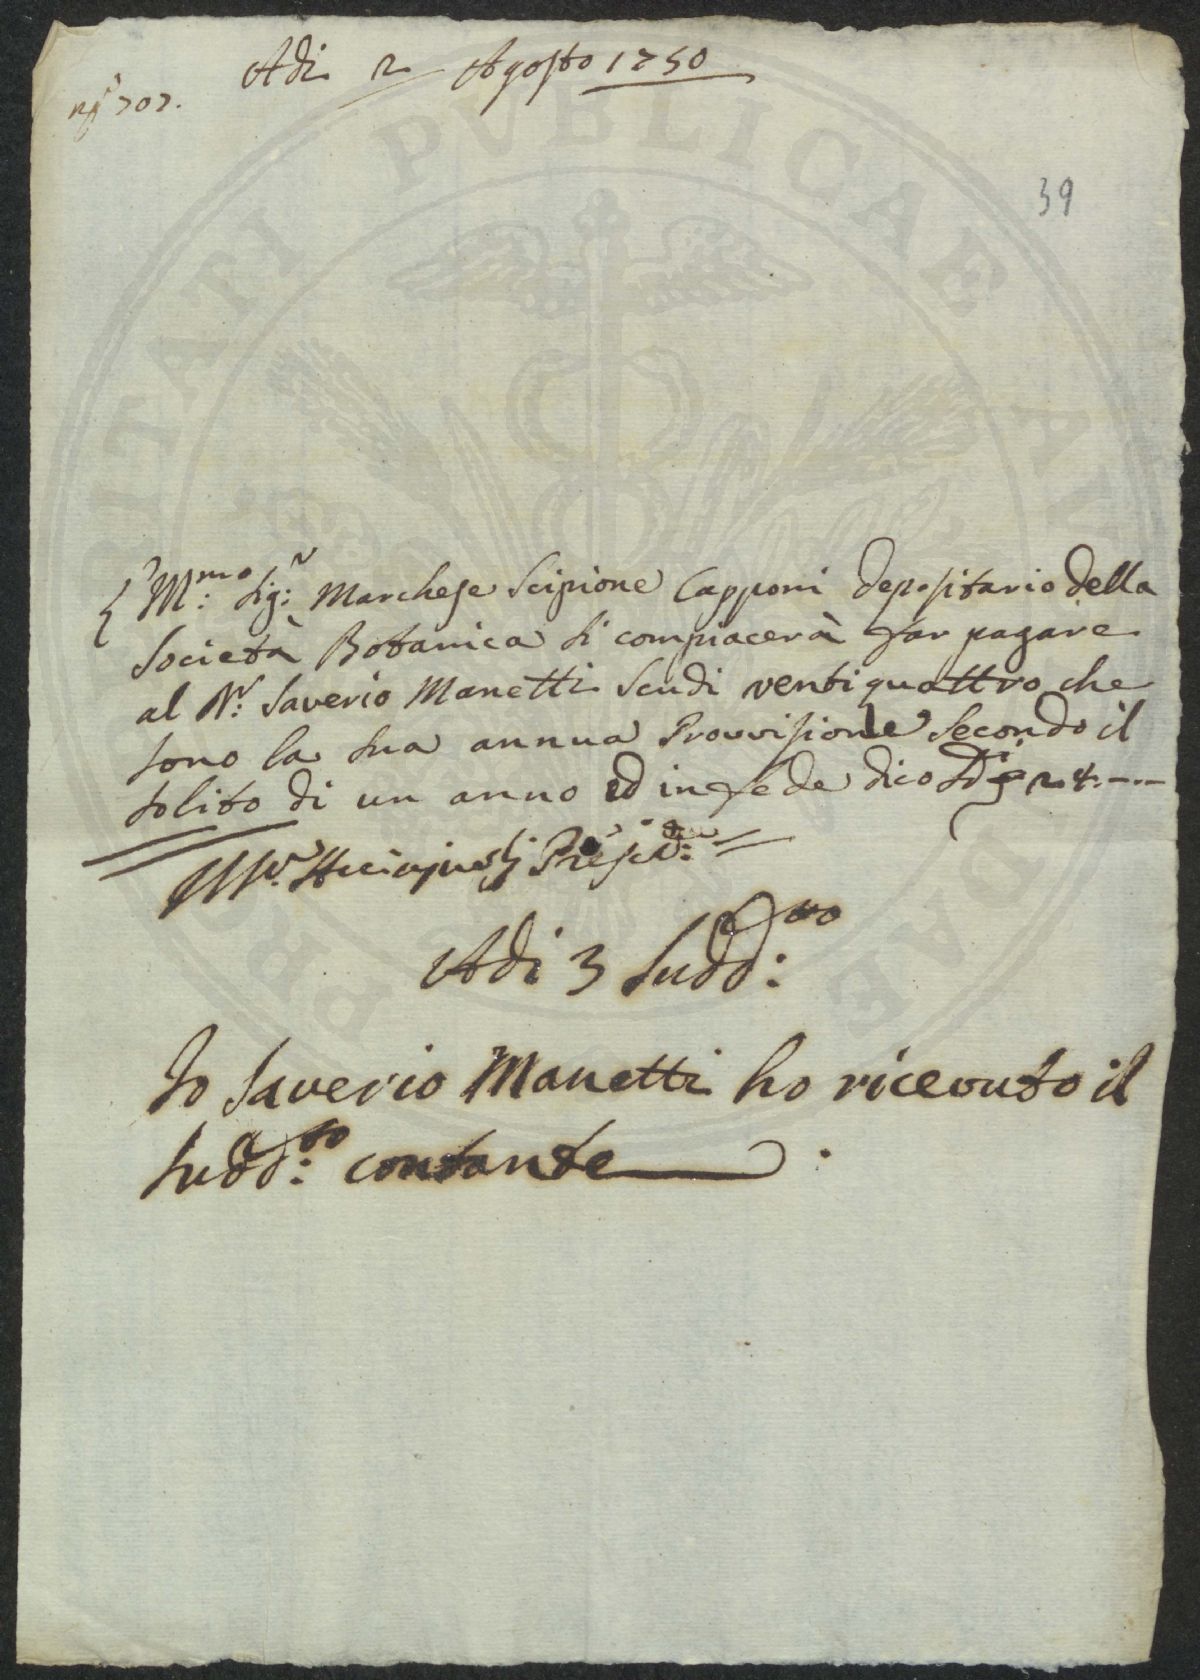 Adi 2 Agosto 1750
707.
39
Ill:mo Sig:r Marchese Scipione Capponi depositario della
Società Botanica si compiacerà far pagare
al D:r Saverio Manetti Scudi ventiquattro che
sono la sua annua Provvisione Secondo il
solito di un anno ed in fede dico Di 24.---
Acciajuoli Presid:te
Adi 3 sudd:to
Io Saverio Manetti ho ricevuto il
sudd:to contante.
PUBLICAE